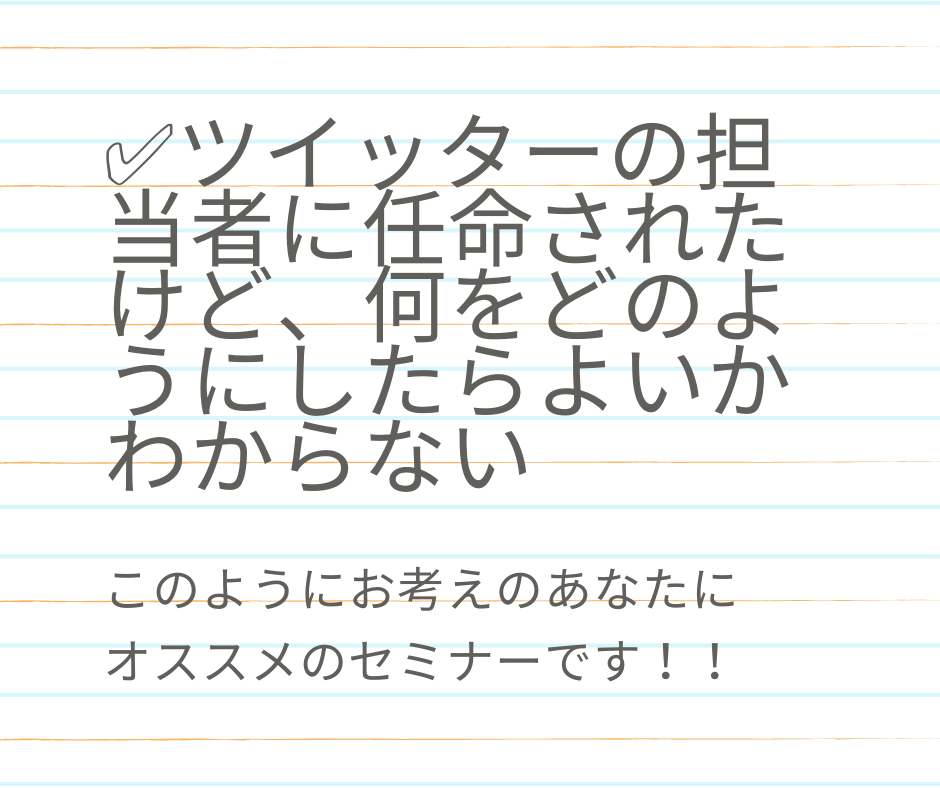 ✓ツイッターの担
当者に任命された
けど、何をどのよ
うにしたらよいか
わからない
このようにお考えのあなたに
オススメのセミナーです！！